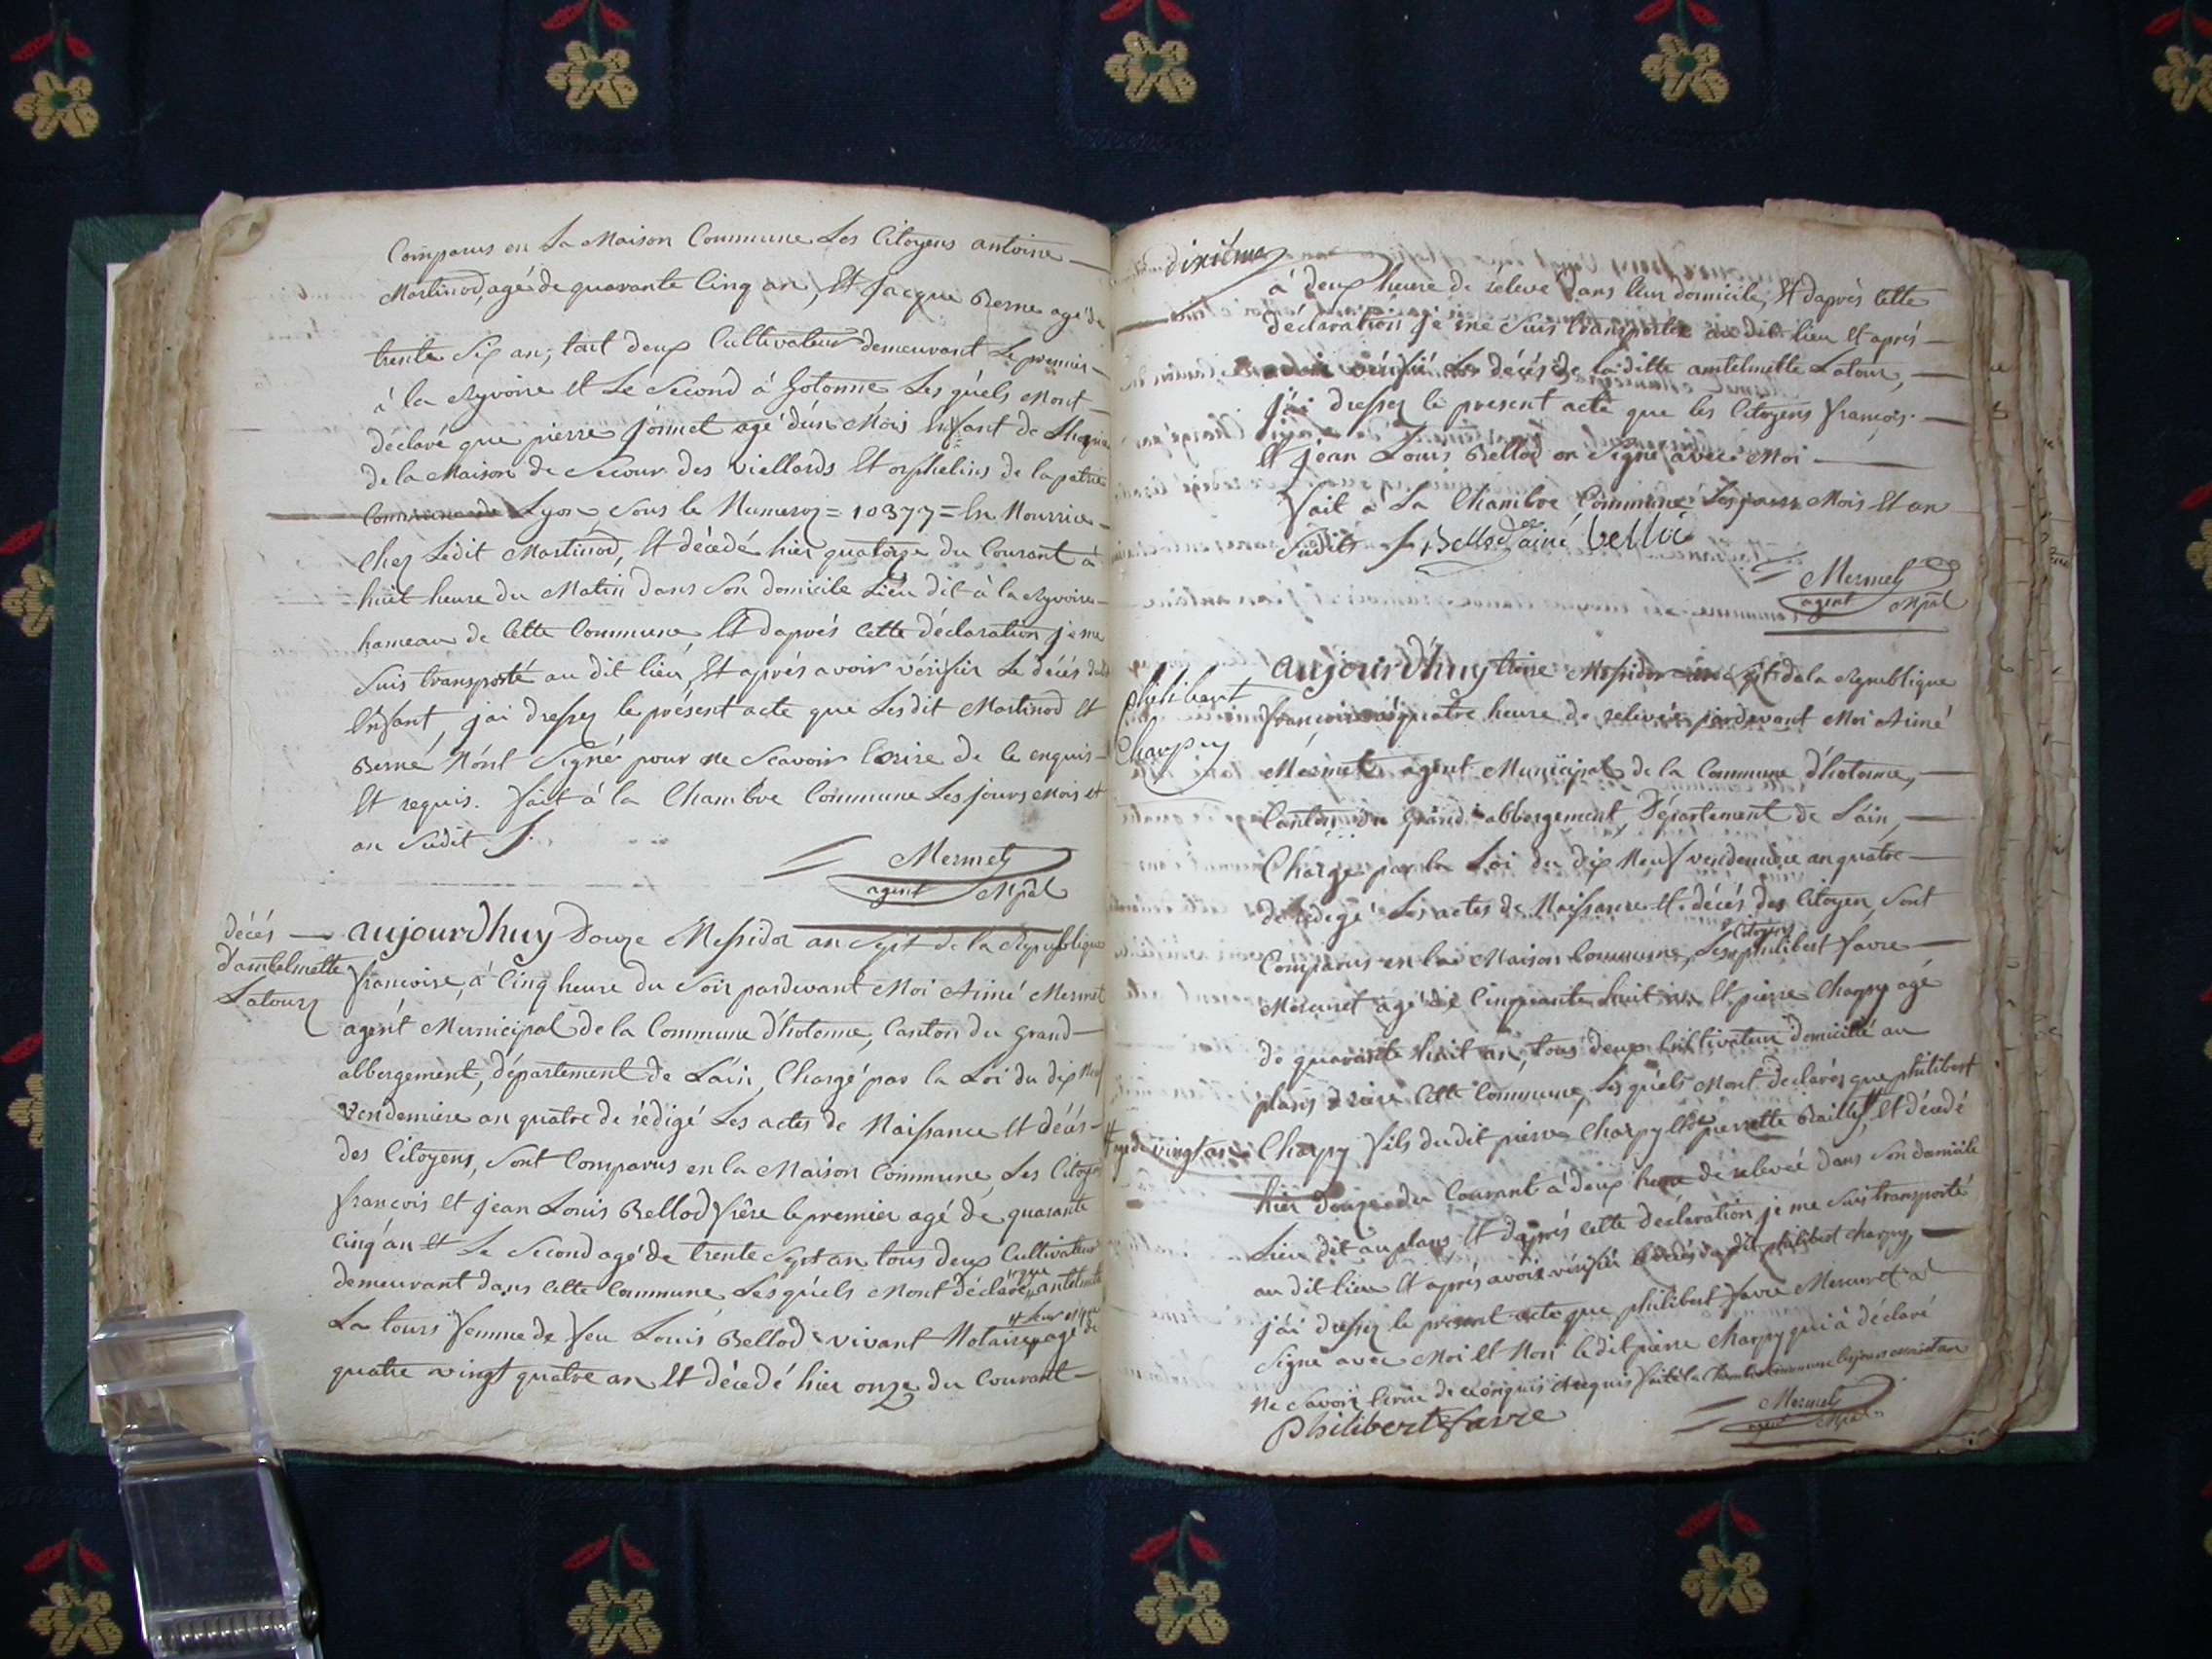 Comparus en La Maison Commune Les Citoyens antoine
Martinod, agé de quarante Cinq an, Et Jacque Berne agé de
trente Six an, tout deux Cultivateur demeurant Le premier
à la Ryvoire et Le Second à hotonne Les quels Mont
déclaré que pierre jomet agé d'un Mois Enfant de
de la Maison de Secour des viellards Et orphelins de la patrie
Commune de Lyon, Sous le Numeroz = 10377 = En Nourrice
Chez Ledit Martinod, Et décedé hier quatorze du Courant à
huit heure du Matin dans Son domicile Lieu dit à la Ryvoire
hameau de Cette Commune, Et daprés Cette déclaration je me
Suis transporté au dit lieu, Et aprés avoir vérifier Le décés dudit
Enfant, jai dressez le présent acte que Lesdit Martinod Et
Berne N'ont Signé pour ne Scavoir Ecrire de le enquis
Et requis. fait à la Chambre Commune Les jours Mois et
an Sudit
Mermet
agent Mpal
décés
d'antelmette
Latour
aujourdhuy Douze Messidor an Sept de la Republique
francoise, à Cinq heure du Soir pardevant Moi Aimé Mermet
agent Municipal de la Commune d'hotonne, Canton du Grand
abbergement, département de Lain, Chargé par la Loi du dix Neuf
Vendemiere an quatre de rédigé Les actes de Naissance Et décés
des Citoyens, Sont Comparus en la Maison Commune, Les Citoyens
françois Et jean Louis Bellod frére le premier agé de quarante
Cinq an et Le Second agé de trente Sept an tous deux Cultivateur
demeurant dans Cette Commune Les quels Mont déclaré que antelmette
La tour femme de feu Louis Bellod vivant Notaire agé de
quatre vingt quatre an Et décedé hier onze du Courant
dixiéme
à deux heure de releve dans leur domicile, Et daprés Cette
déclaration je me Suis transporter au dit lieu Et aprés
vérifié Le décés de la ditte antelmette Latour,
j'ai dressez le present acte que les Citoyens françois
Et jean Louis Bellod on Signé avec Moi
fait à La Chambre Commune Les jours Mois Et an
Sudits Bellod ainé
Mermet
agent Mpal
philibert
Charpy
aujourd'huy treize Messidor an Sept de la Republique
françoise à quatre heure de relevée pardevant Moi Aimé
Mermet agent Municipal de la Commune d'hotonne,
Canton du Grand abbergement, Département de Lain,
Chargé par la Loi du dix Neuf vendemiere an quatre
de redigé Les actes de Naissance Et décés des Citoyen, Sont
Comparus en la Maison Commune, Les Citoyens philibert favre
Mercuret agé de Cinquante huit an Et pierre Charpy agé
de quarante huit an, tous deux Cultivateur domicilié au
plans Cette Commune, Les quels Mont declarés que philibert
agé de vingt an Charpy fils dudit pierre Charpy Et de pierrette Baillet, Et décedé
hier douze du Courant à deux heure de relevée dans Son domicile
Lieu dit au plans, Et daprés Cette déclaration je me Suis transporté
au dit lieu Et aprés avoir vérifier le décés du dit philibert charpy,
j'ai dressez le present acte que philibert favre Mercuret a
Signé avec Moi Et Non le dit pierre Charpy qui à déclaré
ne Savoir Ecrire de ce enquis Et requis fait à la Chambre Commune les jours mois et an
Philibert favre
Mermet
agent Mpal